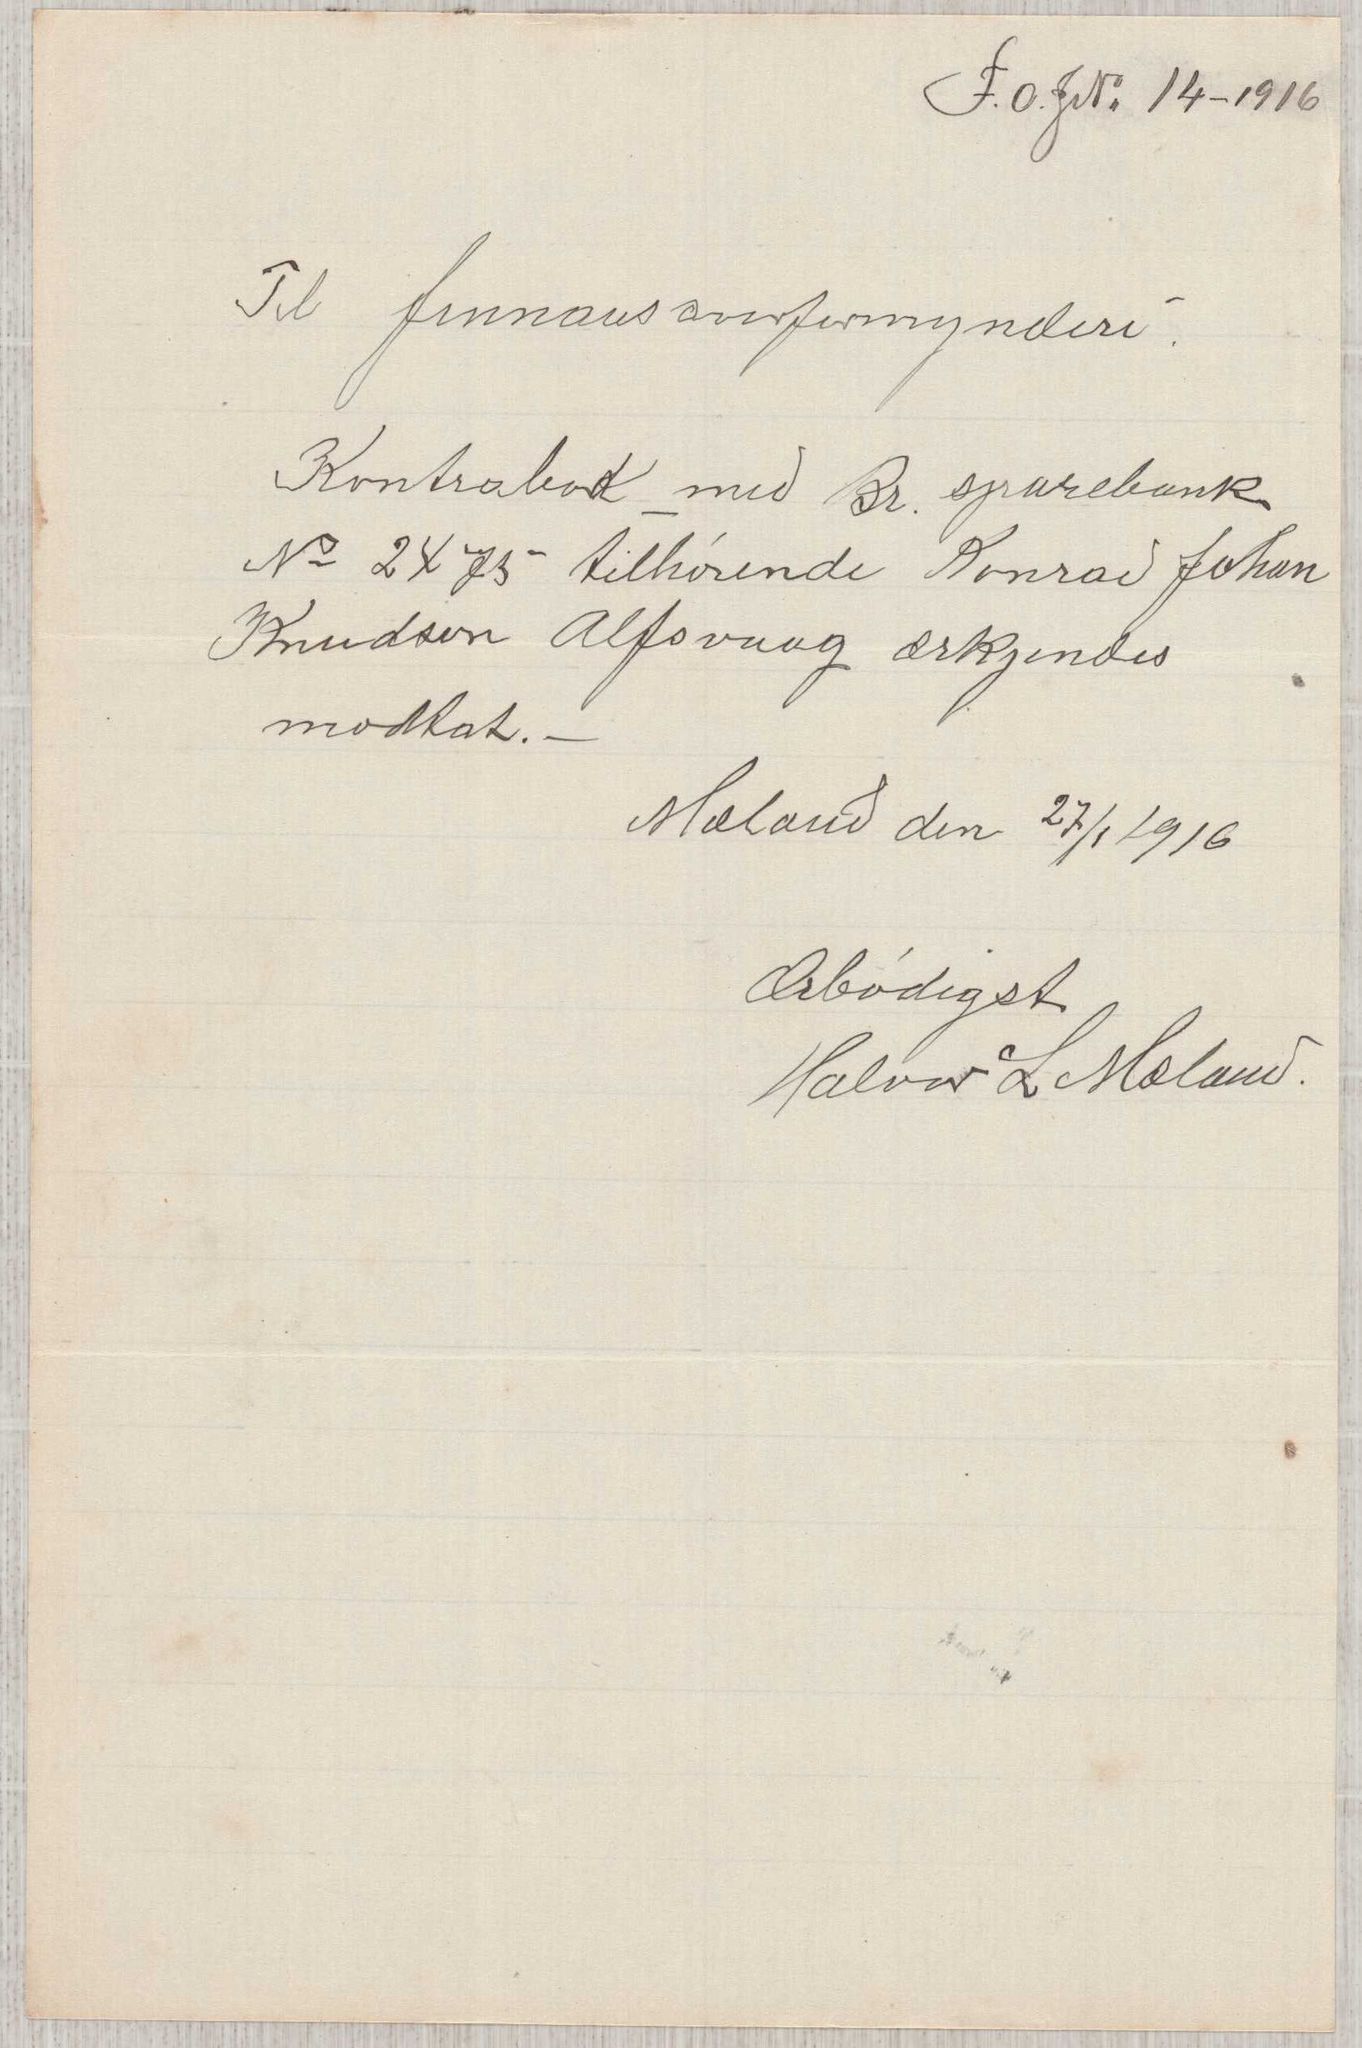 F.O.J.No. 14-1916
Til finnaas overformynderi.
Kontrabok med Br. sparebank
No 2475 tilhørende Konrad Johan
Knudsen Alfsvaag ærkjendes
modtat. —
Mæland den 27/1 1916
Ærbødigst
Halvor L Mæland.